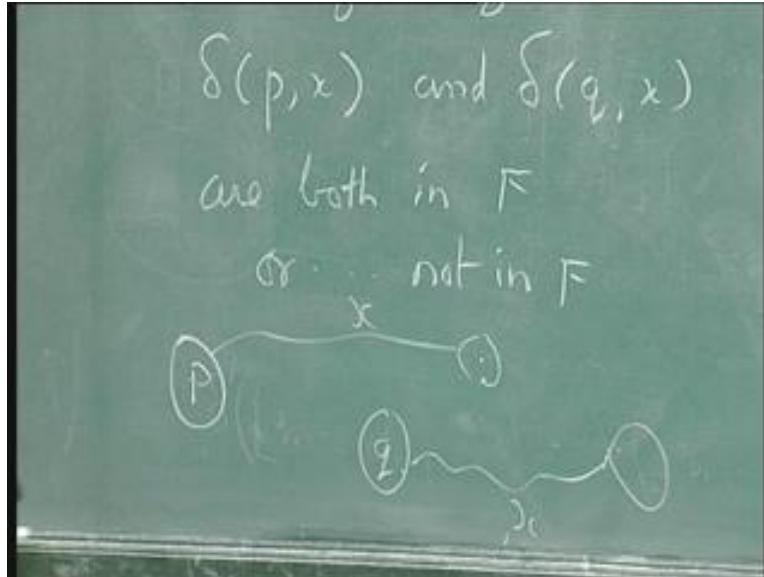 δ(p,x) and δ(q,x)
are both in F
or ... not in F
x
p
q
x